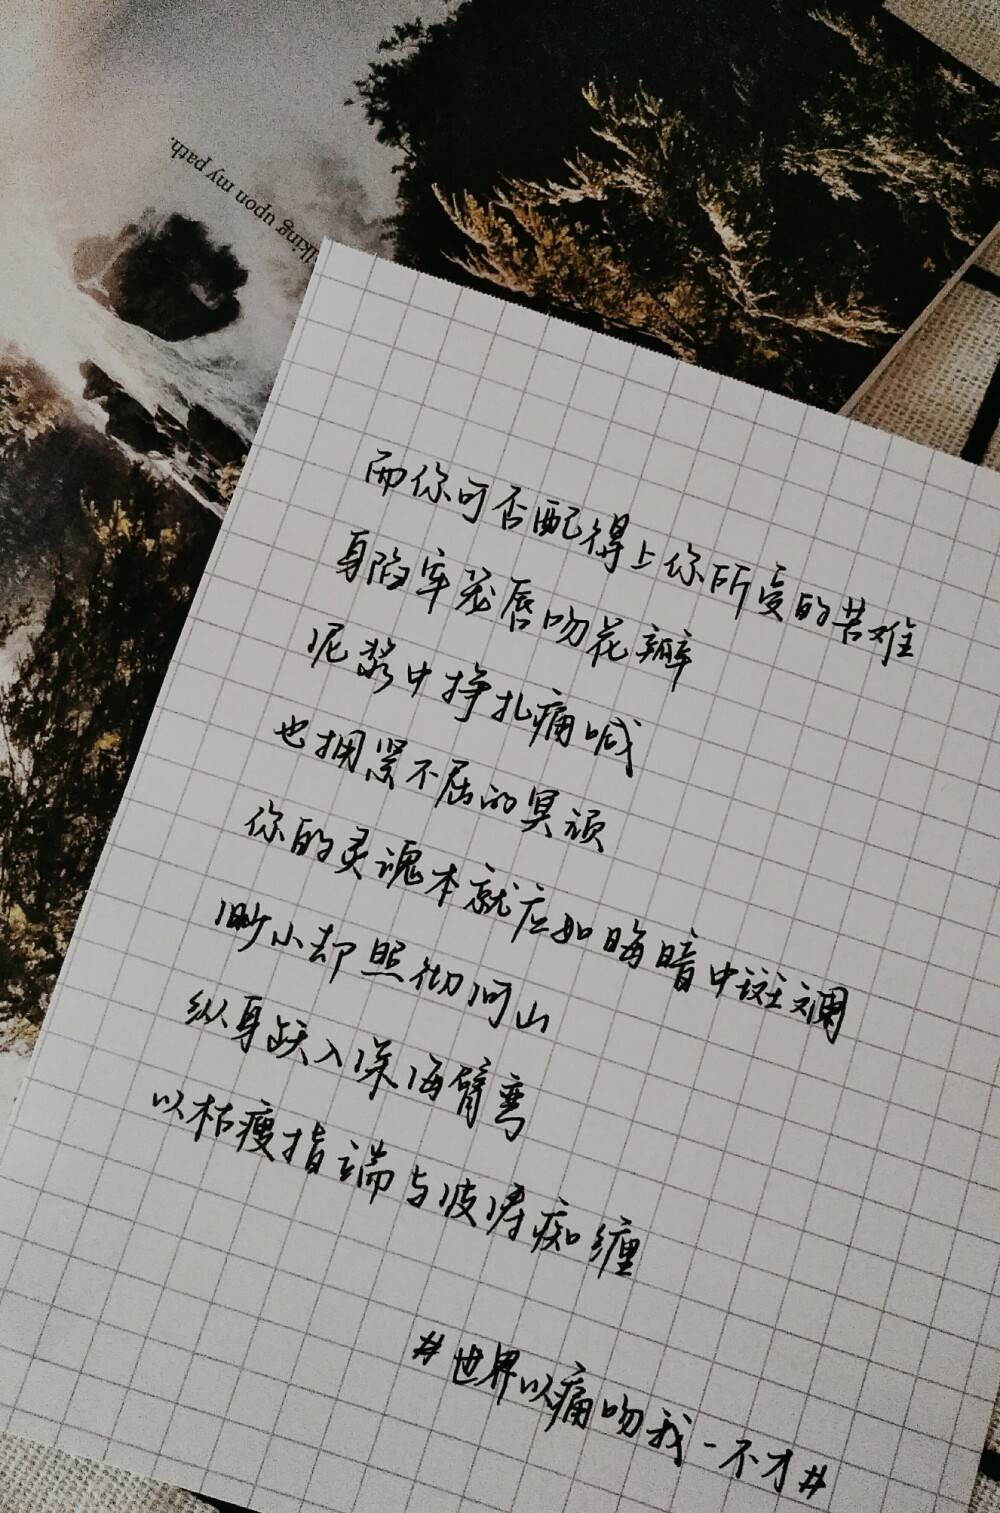 lking upon my path.
而你可否配得上你所受的苦难
身陷牢笼唇吻花瓣
泥浆中挣扎痛喊
也拥紧不屈的冥顽
你的灵魂本就应如晦暗中斑斓
渺小却照彻河山
纵身跃入深海臂弯
以枯瘦指端与波涛痴缠
#世界以痛吻我-不才#